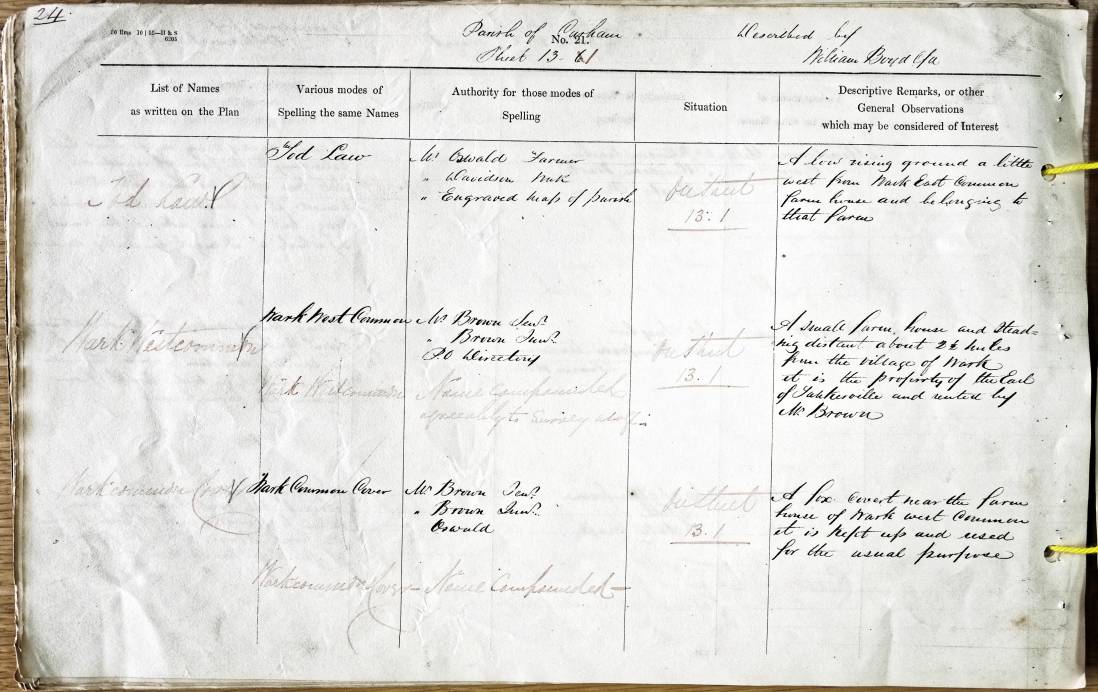 24
Parish of Carham
No. 21.
Sheet 13. 1
Described by
William Boyd C/a
List of Names
as written on the Plan
Various modes of
Spelling the same Names
Authority for those modes of
Spelling
Situation
Descriptive Remarks, or other
General Observations
which may be considered of Interest
Tod Law
Tod Law
Mr Oswald Farmer
" Davidson
" Engraved Map of parish
13.1
A low rising ground a little
west from Wark East Common
farm house and belonging to
that farm
Wark Westcommon
Wark West Common
Mr Brown Senr.
" Brown Junr.
PO Directory
Wark Westcommon
Name compounded
agreeably to
13.1
A small farm house and stead=
ing distant about 2½ miles
from the village of Wark
it is the property of the Earl
of Tankerville and rented by
Mr Brown
Warkcommon Cover
Wark Common Cover
Mr Brown Senr.
" Brown Junr.
Oswald
13.1
A fox covert near the farm
house of Wark west Common
it is kept up and used
for the usual purpose
Warkcommon Cover
Name Compounded